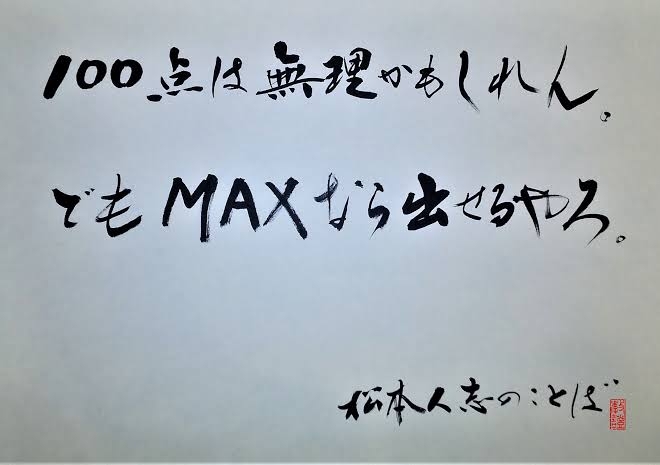 100点は無理かもしれん。
でもMAXなら出せるやろ。
松本人志のことば